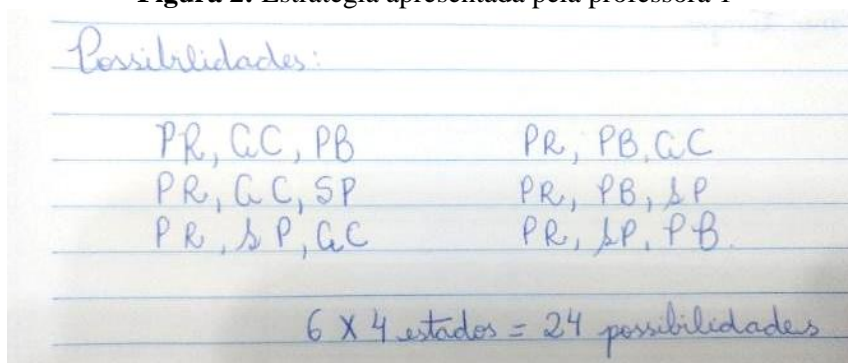 Figura 2: Estratégia apresentada pela professora 1
Possibilidades:
PR, AC, PB
PR, PB, AC
PR, AC, SP
PR, PB, SP
PR, SP, AC
PR, SP, PB.
6 X 4 estados = 24 possibilidades